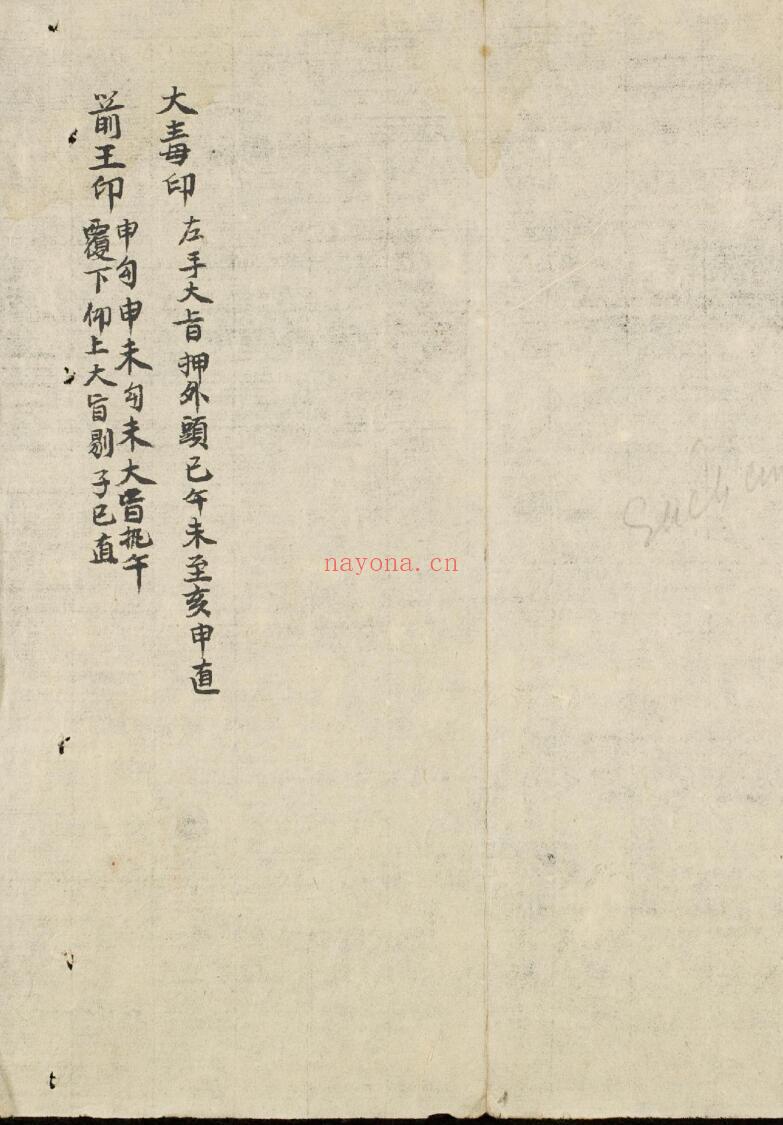 大毒印 左手大旨押外頭巳午未至亥申直
箭王印 申勾申未勾未大旨挑午
覆下仰上大旨剔子巳直
nayona.cn